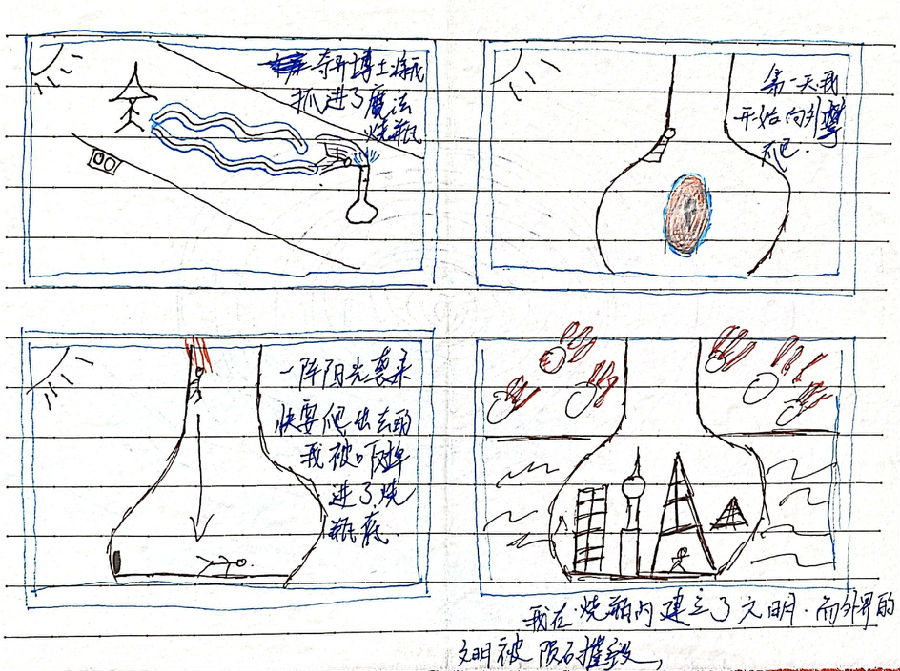 奇异博士将我
抓进了魔法
烧瓶
第一天我
开始向外攀
爬.
一阵阳光袭来
快要爬出去的
我被吓掉
进了烧
瓶底.
我在烧瓶内建立了文明.而外界的
文明被陨石摧毁,